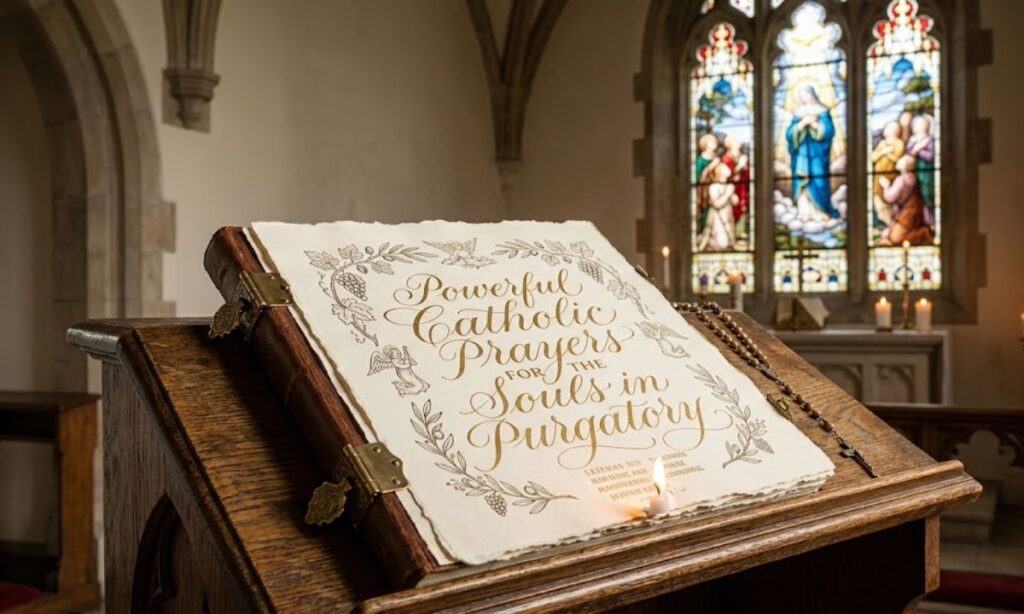 Powerful
Catholic
Prayers
FOR THE
Souls in
Purgatory